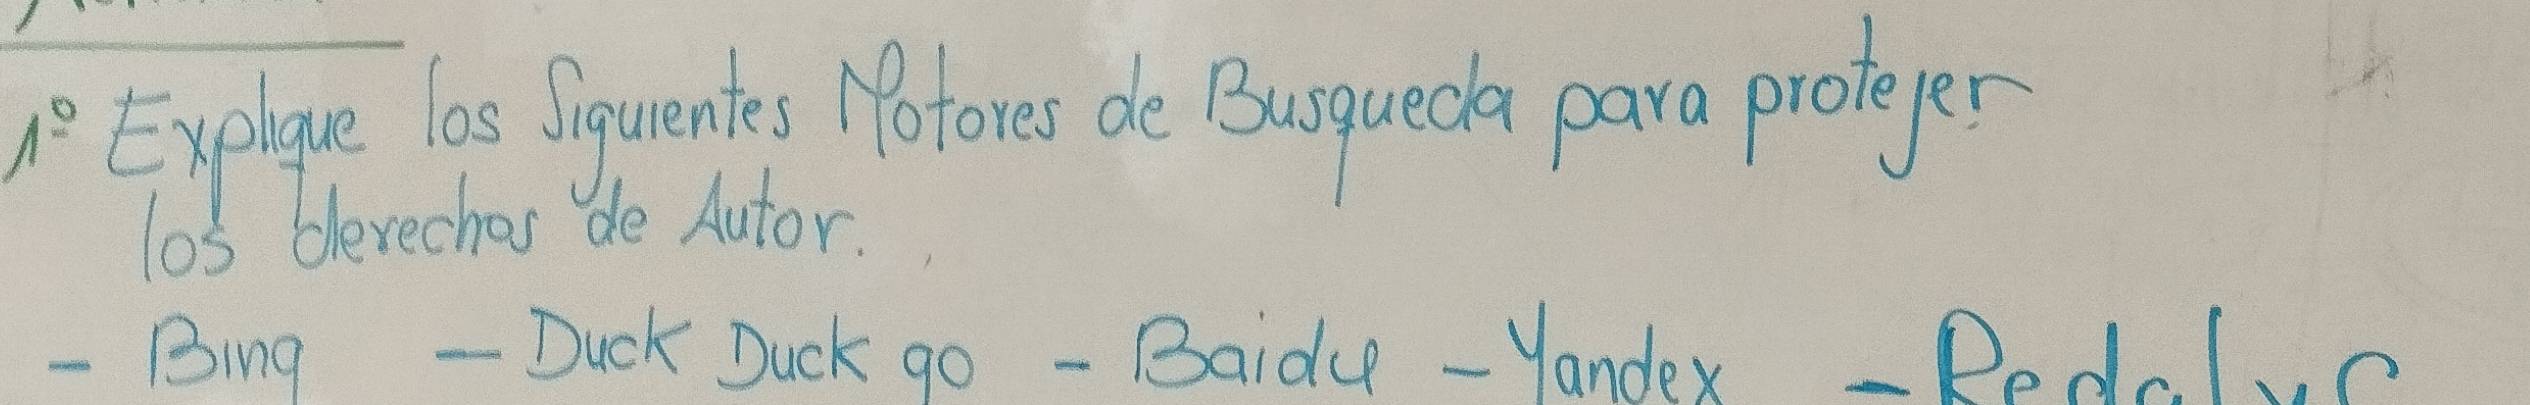 1º Explique los Siguientes Motores de Busqueda para protejer
los derechos de Autor.
- Bing - Duck Duck go - Baidu - Yandex - Redalyc